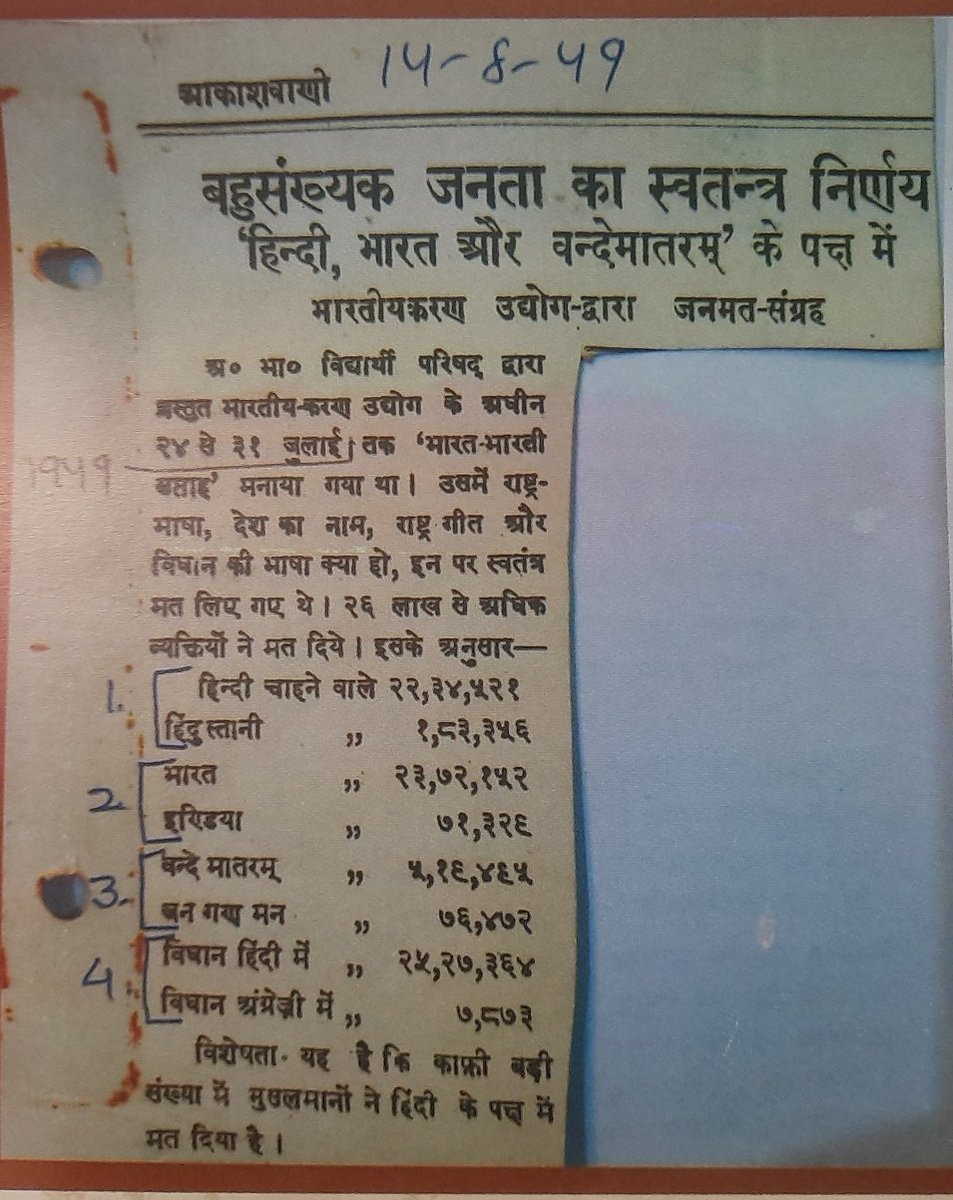 आकाशवाणी 14-8-49
बहुसंख्यक जनता का स्वतन्त्र निर्णय
'हिन्दी, भारत और वन्देमातरम्' के पक्ष में
भारतीयकरण उद्योग-द्वारा जनमत-संग्रह
अ० भा० विद्यार्थी परिषद् द्वारा
प्रस्तुत भारतीय-करण उद्योग के अधीन
२४ से ३१ जुलाई तक 'भारत-भारती
1949
सप्ताह' मनाया गया था। उसमें राष्ट्र-
भाषा, देश का नाम, राष्ट्र गीत और
विधान की भाषा क्या हो, इन पर स्वतंत्र
मत लिए गए थे। २६ लाख से अधिक
व्यक्तियों ने मत दिये। इसके अनुसार—
1. हिन्दी चाहने वाले २२,३४,५२१
हिंदुस्तानी ,, १,८३,३५६
2. भारत ,, २३,७२,१५२
इण्डिया ,, ७१,३२९
3. वन्दे मातरम् ,, ५,१९,४९५
जन गण मन ,, ७६,४७२
4. विधान हिंदी में ,, २५,२७,३६४
विधान अंग्रेज़ी में ,, ७,८७३
विशेषता यह है कि काफ़ी बड़ी
संख्या में मुसलमानों ने हिंदी के पक्ष में
मत दिया है।